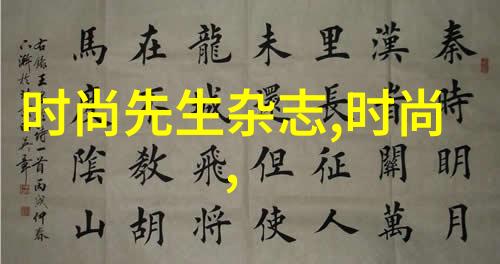 时尚先生杂志,时尚
,
秦時明月
漢時關萬
里長征人
未還但使
龍城飛將
在不教胡
馬度陰山
右錄王 詩一首丙戌仲春